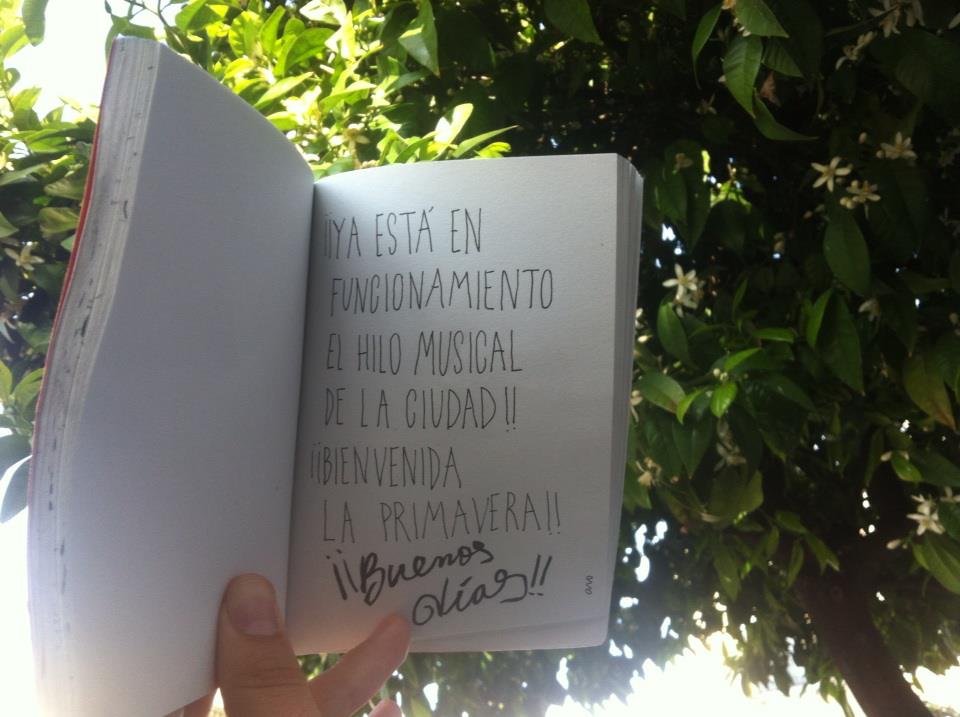 ¡¡YA ESTÁ EN
FUNCIONAMIENTO
EL HILO MUSICAL
DE LA CIUDAD!!
¡¡BIENVENIDA
LA PRIMAVERA!!
¡¡Buenos
días!!